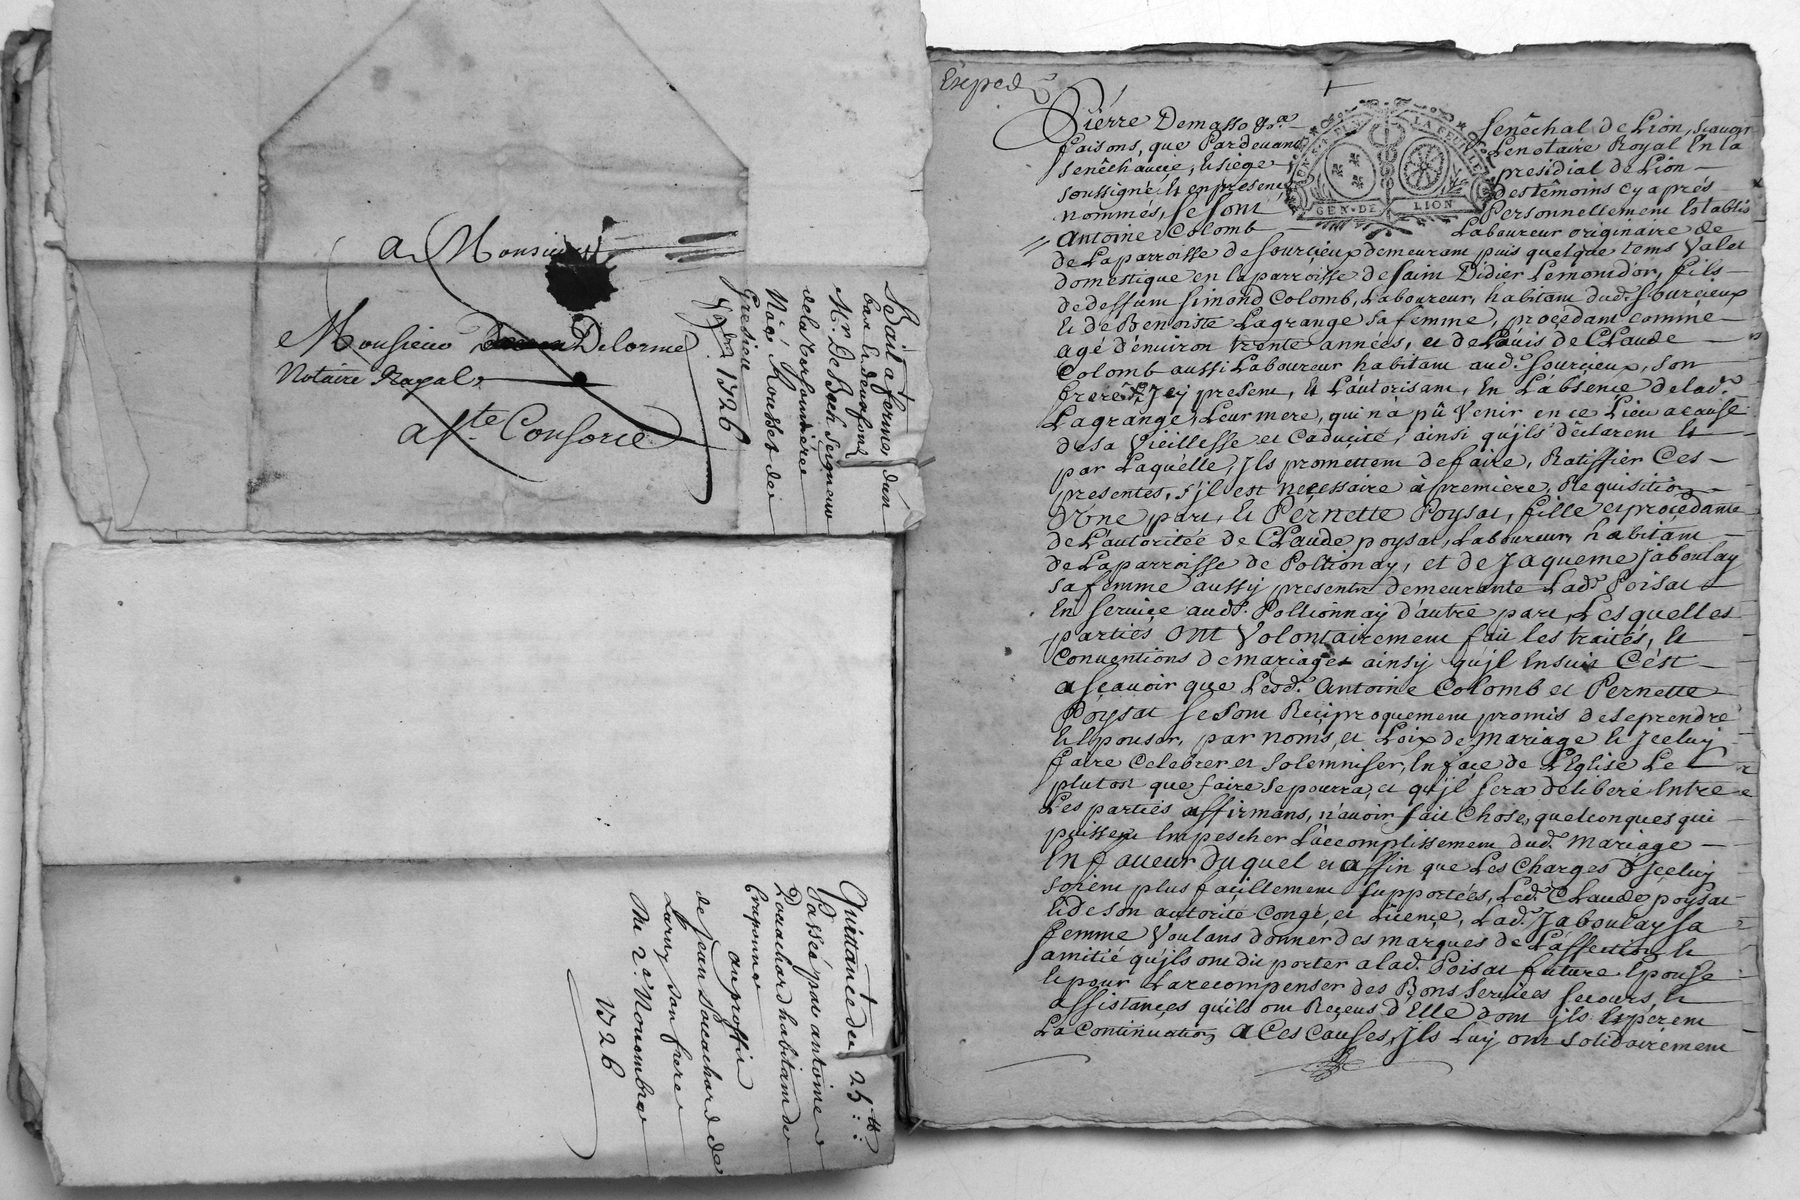 a Monsieur
Monsieur Delorme
Notaire Royal
a Ste Consorce
Bail a ferme d'un
bas et de
Mr. De Bach seigneur
de la
Noé Rousset de
Gresieu
9bre 1726
Quittance de 25 tt
Passé par antoine
Souachard habitant de
Craponne
au proffit
de Jean Souachard de
Lurny son frere
Du 2e Nouembre
1726
Exped
Pierre Demasso gr. Senêchal de Lion, sçavoir
faisons, que Pardevant Le notaire Royal En la
senêchaucée, et siege presidial de Lion
soussigné et en presence Des têmoins cy aprés
nommés, se sont Personnellement Establis
Antoine Colomb Laboureur originaire de
De La parroisse de sourcieux demeurant puis quelque tems Valet
domestique en la parroisse de saint Didier Le mont d'or, fils
de deffunt simond Colomb, Laboureur, habitant dud. sourcieux
et de Benoiste Lagrange sa femme, proçedant comme
agé d'enuiron trente années, et de L'auis de Claude
Colomb aussi Laboureur habitant aud. sourcieux, son
frere Jcy present, et L'autorisant, En L'absence de lad.
Lagrange, Leur mere, qui n'a pû Venir en ce Lieu a cause
de sa Vieillesse et Caducité, ainsi qu'jls dêclarent et
par Laquelle, Jls promettent de faire, Ratiffier Ces
presentes, s'jl est neçessaire à premiere Requisition
D'une part, et Pernette Poysat, fille et proçedante
de L'autoritée de Claude poysat, Laboureur, habitant
de La parroisse de Pollionay, et de Jaqueme Jaboulay
sa femme aussy presents demeurante Lad. Poisat
En serviçe aud. Pollionnay d'autre part, Lesquelles
parties ont Volontairement fait les traités, et
Conuentions de mariage ainsy qu'jl Ensuit C'est
a sçauoir que Lesd. Antoine Colomb et Pernette
Poysat se sont Reçiproquement promis de se prendre
et Epouser, par noms, et Loix de mariage et Jceluy
faire Celebrer et solemniser, En façe de L'Eglise Le
plutost que faire se pourra, et qu'jl sera déliberé Entre
Les parties affirmans, n'auoir fait Chose, quelconques qui
puissent Empescher L'accomplissement dud. mariage
En faueur Duquel et affin que Les Charges D'Jçeluy
soient plus façillement supportées, Led. Claude poysat
et de son autorité Congé, et Liçençe, Lad. Jaboulay sa
femme Voulans donner des marques de L'affection et
amitié qu'jls ont dit porter a lad. Poisat future Epouse
et pour La recompenser des Bons serviçes secours, et
assistançes qu'jls ont Reçeus d'Elle dont jls Esperent
La Continuation, A Ces Causes, Jls Luy ont solidairement
GEN. DE LION